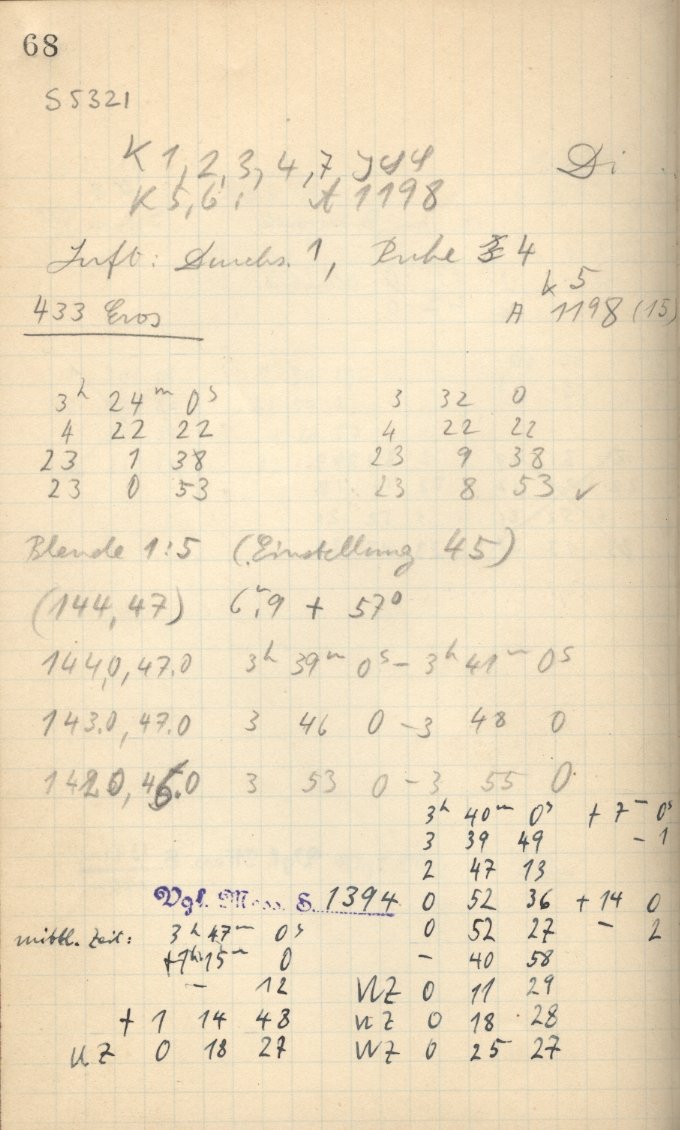 68
S 5321
K 1, 2, 3, 4, 7
K 5, 6 : A 1198
Di
Luft: Durchs. 1, Ruhe 4
K 5
A 1198 (15)
433 Eros
3h 24m 0s 3 32 0
4 22 22 4 22 22
23 1 38 23 9 38
23 0 53 23 8 53 ✓
Blende 1:5 (Einstellung 45)
(144, 47) 6,9 + 57°
144,0, 47.0 3h 39m 0s – 3h 41m 0s
143.0, 47.0 3 46 0 – 3 48 0
142.0, 46.0 3 53 0 – 3 55 0
3h 40m 0s + 7m 0s
3 39 49 – 1
2 47 13
Vgl. Mess. S. 1394 0 52 36 + 14 0
mittl. Zeit: 3h 47m 0s 0 52 27 – 2
15m 0 – 40 58
– 12 WZ 0 11 29
+ 1 14 48 WZ 0 18 28
WZ 0 18 27 WZ 0 25 27